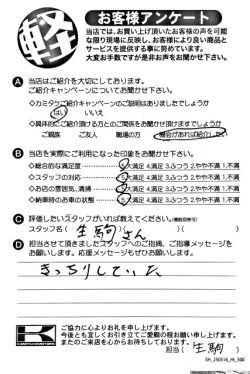 軽
お客様アンケート
当店では、お買い上げ頂いたお客様の声を可能
な限り現場に反映し、お客様により良い商品と
サービスを提供する事に努めています。
大変お手数ですが是非お声をお聞かせ下さい。
A 当店はご紹介を大切にしております。
ご紹介キャンペーンについてお聞かせ下さい。
◇カミタケご紹介キャンペーンのご説明はありましたでしょうか
はい いいえ
◇具体的にご紹介頂ける方とのご関係をお聞かせ頂けますでしょうか
ご親族 ご友人 職場の方 機会があれば紹介したい
B 当店を実際にご利用になった印象をお聞かせ下さい。
◇総合的な満足度 5.大満足 4.満足 3.ふつう 2.やや不満 1.不満
◇スタッフの対応 5.大満足 4.満足 3.ふつう 2.やや不満 1.不満
◇お店の雰囲気、清掃 5.大満足 4.満足 3.ふつう 2.やや不満 1.不満
◇納車時のお車の状態 5.大満足 4.満足 3.ふつう 2.やや不満 1.不満
C 評価したいスタッフがいれば教えてください。(複数回答可)
スタッフ名( 生駒さん )( )( )
D 担当させて頂きましたスタッフへのご指摘、ご指導メッセージを
お願いします。応援メッセージもぜひお願いします。
きっちりしていた
SH_250516_HI_500
ご協力に心よりお礼を申し上げます。
今後とも宜しくお引き立てご愛顧の程お願い申し上げます。
またのご来店を心からお待ちしております。
担当( 生駒 )